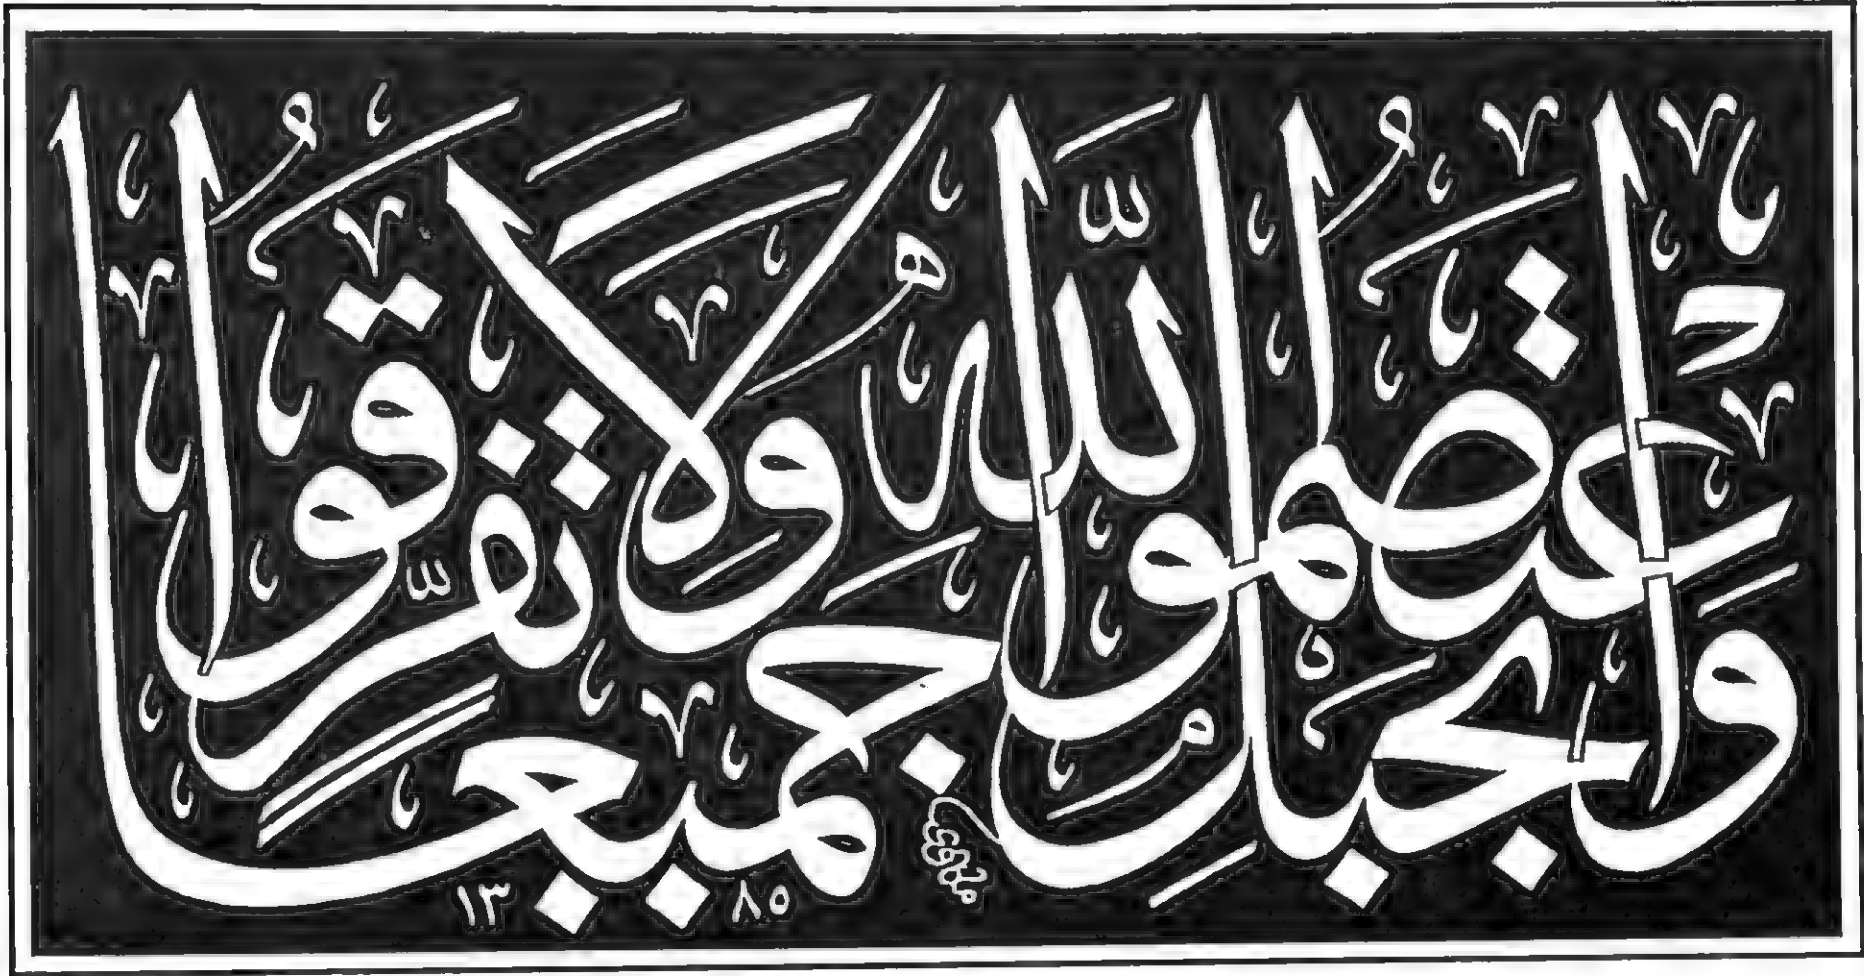 وَاعْتَصِمُوا بِحَبْلِ اللَّهِ جَمِيعًا وَلَا تَفَرَّقُوا
١٣٨٥